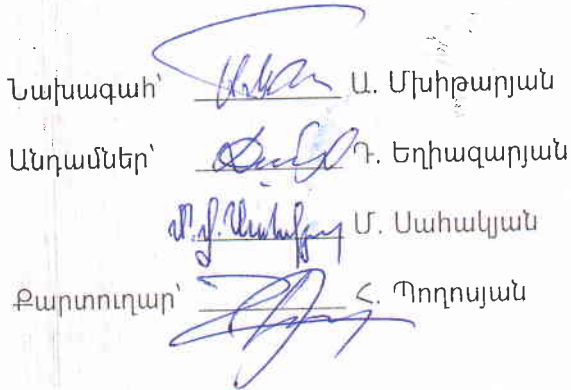 Նախագահ՝ Ա. Մխիթարյան
Անդամներ՝ Դ. Եղիազարյան
Մ. Սահակյան
Քարտուղար՝ Հ. Պողոսյան